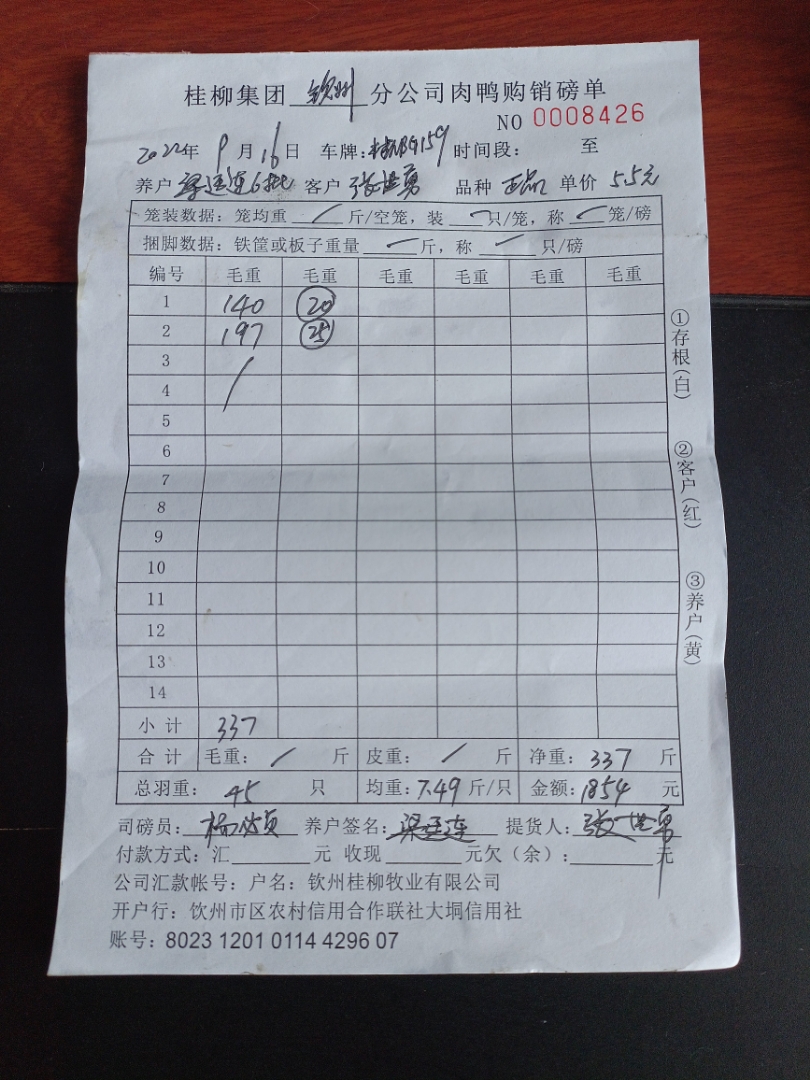 桂柳集团 钦州 分公司肉鸭购销磅单
NO 0008426
2022年 9 月 16日 车牌: 159 时间段: 至
养户 梁廷连6批 客户 张世勇 品种 正品 单价 5.5元
笼装数据: 笼均重 / 斤/空笼, 装 / 只/笼, 称 / 笼/磅
捆脚数据: 铁筐或板子重量 / 斤, 称 / 只/磅
编号 毛重 毛重 毛重 毛重 毛重 毛重
1 140 20
2 197 25
3 /
4
5
6
7
8
9
10
11
12
13
14
小计 337
合计 毛重: / 斤 皮重: / 斤 净重: 337 斤
总羽重: 45 只 均重: 7.49 斤/只 金额: 1854 元
司磅员: 杨 贞 养户签名: 梁廷连 提货人: 张世勇
付款方式: 汇 元 收现 元欠(余): 元
公司汇款帐号: 户名: 钦州桂柳牧业有限公司
开户行: 饮州市区农村信用合作联社大垌信用社
账号: 8023 1201 0114 4296 07
①存根(白)
②客户(红)
③养户(黄)